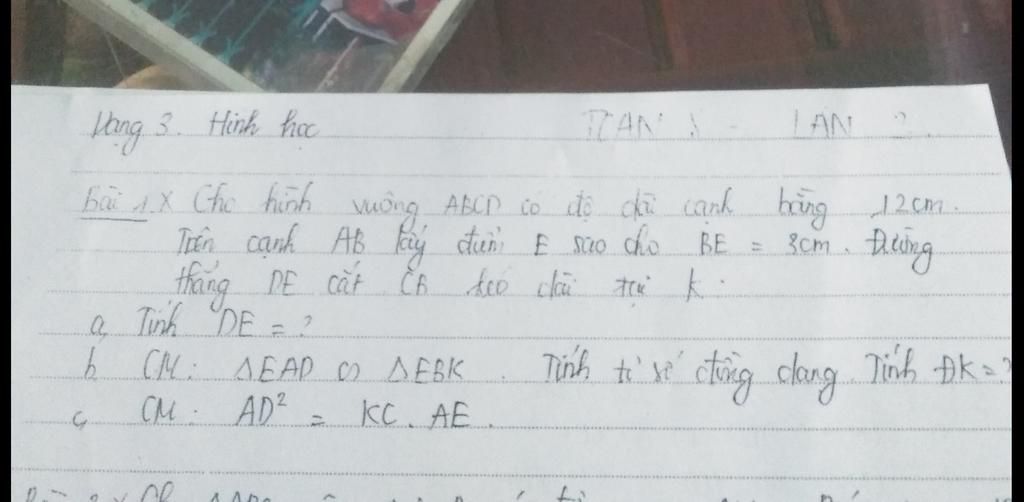 Dạng 3. Hình học
TOÁN 8 - LẦN 2.
Bài 1.X Cho hình vuông ABCD có độ dài cạnh bằng 12cm.
Trên cạnh AB lấy điểm E sao cho BE = 3cm. Đường
thẳng DE cắt CB kéo dài tại K.
a, Tính DE = ?
b, CM: ΔEAD ∽ ΔEBK. Tính tỉ số đồng dạng. Tính ĐK = ?
c, CM: AD² = KC. AE.